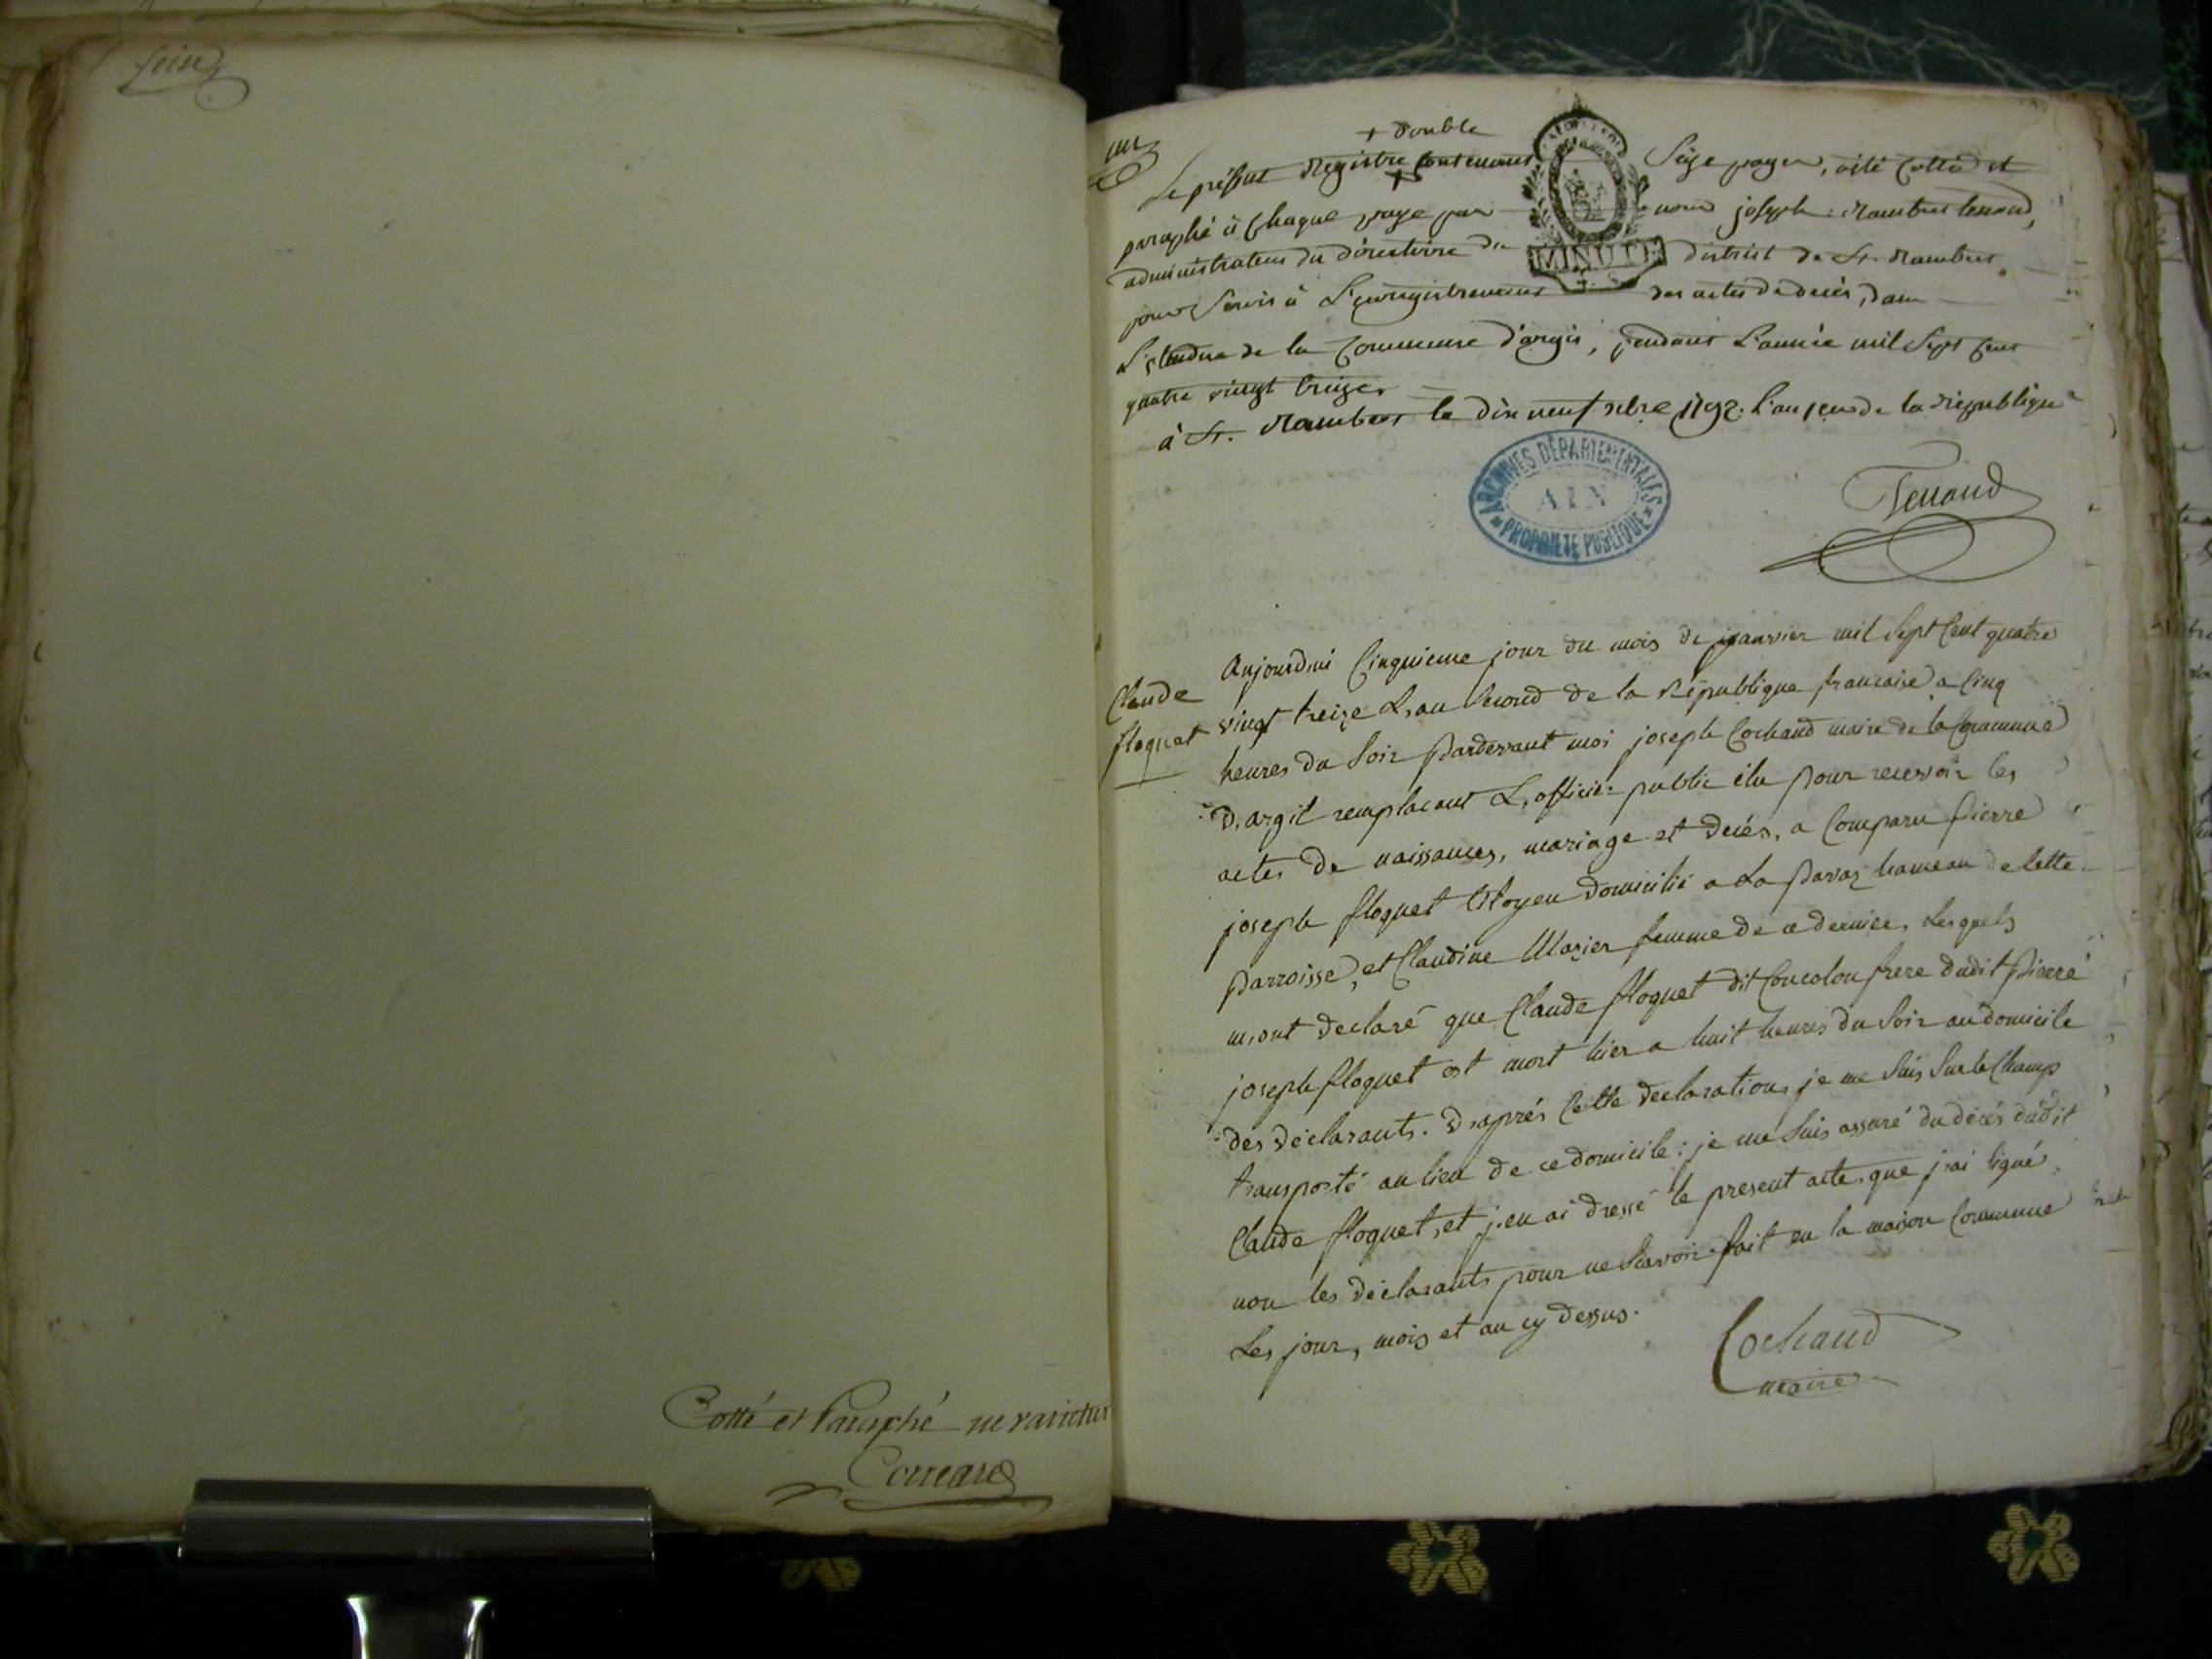 seize
Cotté et Paraphé ne varietur
un
+ double
Le présent Registre + Contenant Seize pages, a été Cotté et
paraphé à Chaque page par nous joseph rambert
administrateur du directoire du district de St. Rambert
MINUTE
pour Servir à L'enregistrement des actes de décès, dans
L'étendue de la Commune d'argis, pendant L'année mil Sept Cent
quatre vingt treize.
à St. Rambert le dix neuf xbre 1792. L'an 1er de la République
ARCHIVES DÉPARTEMENTALES
AIN
* PROPRIÉTÉ PUBLIQUE *
Claude
floquet
Aujourdhui Cinquieme jour du mois de janvier mil Sept Cent quatre
vingt treize L,an Second de la République francaise a Cinq
heures du Soir Pardevant moi joseph Cochaud maire de la Commune
D,argit remplacant L,officier public élu pour recevoir les
actes de naissances, mariage et decés, a Comparu pierre
joseph floquet Citoyen domicilié a La Pavaz hameau de Cette
Parroisse, et Claudine Mazier femme de ce dernier, Lesquels
m,ont declaré que Claude floquet dit Concolon frere dudit Pierre
joseph floquet est mort hier a huit heures du Soir au domicile
des déclarants. D,aprés Cette declaration, je me Suis Sur le Champ
transporté au lieu de ce domicile : je me Suis assuré du décés dudit
Claude floquet, et j,en ai dressé le present acte, que j,ai signé,
non les déclarants pour ne Scavoir. fait en la maison Commune
Les jour, mois et an cy dessus.
Cochaud
maire